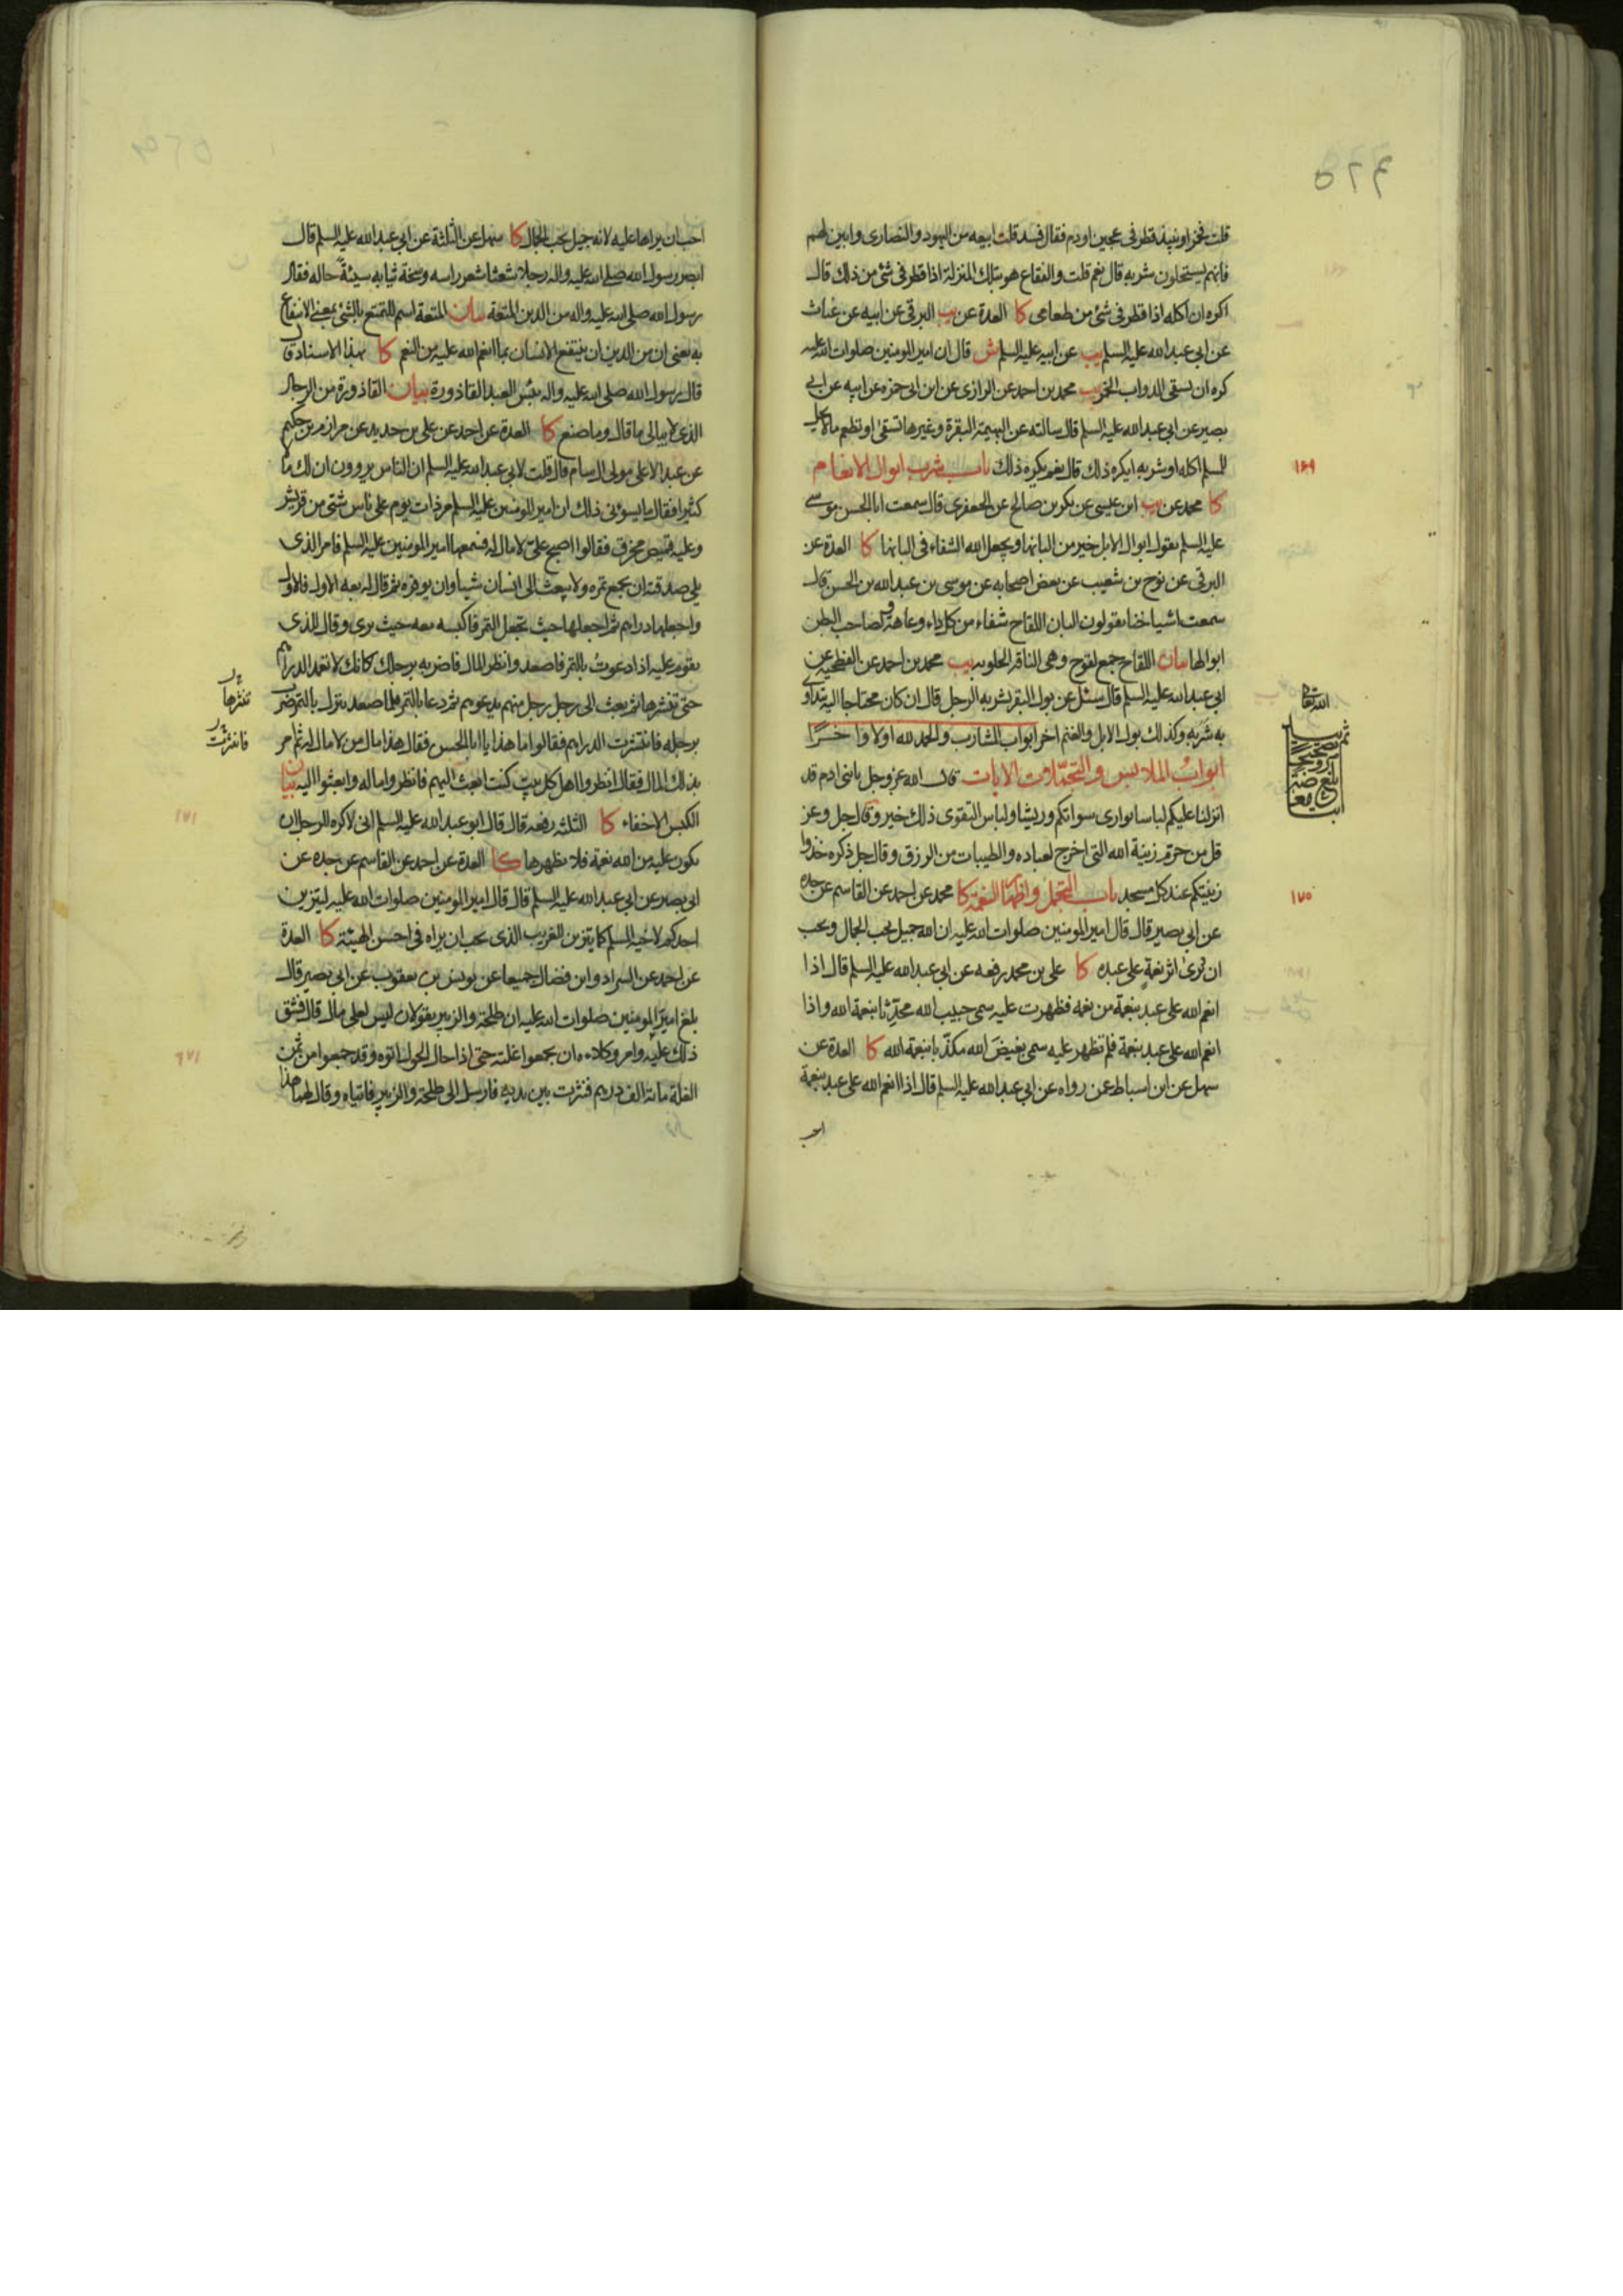 ٥٦٤
قلت فخمر او نبيذ قطر فى عجين او دم فقال فسد قلت ابيعه من اليهود والنصارى وابين لهم
فانهم يستحلون شربه قال نعم قلت والفقاع هو بتلك المنزلة اذا قطر فى شئ من ذلك قال
اكره ان اكله اذا قطر فى شئ من طعامى كا العدة عن يب البرقى عن ابيه عن غياث
عن ابى عبد الله عليه السلم يب عن ابيه عليه السلم ش قال ان امير المومنين صلوات الله عليه
كره ان يسقى الدواب الخمر يب محمد بن احمد عن الرازى عن ابن ابى حمزه عن ابيه عن ابى
بصير عن ابى عبد الله عليه السلم قال سالته عن البهيمة البقرة وغيرها تسقى او تطعم ما لا يحل
للمسلم اكله او شربه ايكره ذلك قال نعم يكره ذلك باب شرب ابوال الانعام
١٦٩
كا محمد عن يب ابن عيسى عن بكر بن صالح عن الجعفرى قال سمعت ابا الحسن موسى
عليه السلم يقول ابوال الابل خير من البانها ويجعل الله الشفاء فى البانها كا العدة عن
البرقى عن نوح بن شعيب عن بعض اصحابه عن موسى بن عبد الله بن الحسن قال
سمعت اشياخنا يقولون البان اللقاح شفاء من كل داء وعاهة ولصاحب البطن
ابوالها بيان اللقاح جمع لقوح وهى الناقة الحلوب يب محمد بن احمد عن الفطحية عن
ابى عبد الله عليه السلم قال سئل عن بول البقر يشربه الرجل قال ان كان محتاجا اليه يتداوى
به شربه وكذلك بول الابل والغنم اخر ابواب المشارب والحمد لله اولا واخرًا
ابوابُ الملابس والتجمّلات الايات قال الله عز وجل يا بنى ادم قد
انزلنا عليكم لباسا يوارى سواتكم وريشا ولباس التقوى ذلك خير وقال جل وعز
قل من حرّم زينة الله التى اخرج لعباده والطيبات من الرزق وقال جل ذكره خذوا
زينتكم عند كل مسجد باب التجمل واظهار النعمة كا محمد عن احمد عن القاسم عن جده
١٧٥
عن ابى بصير قال قال امير المومنين صلوات الله عليه ان الله جميل يحب الجمال ويحب
ان يُرى اثر نعمةٍ على عبده كا على بن محمد رفعه عن ابى عبد الله عليه السلم قال اذا
انعم الله على عبد بنعمة من نعمه فظهرت عليه سمى حبيب الله محدّثا بنعمة الله واذا
انعم الله على عبد بنعمة فلم تظهر عليه سمى بغيض الله مكذّبا بنعمة الله كا العدة عن
سهل عن ابن اسباط عمن رواه عن ابى عبد الله عليه السلم قال اذا انعم الله على عبد بنعمة
احب
احب ان يراها عليه لانه جميل يحب الجمال كا سهل عن الثلثة عن ابى عبد الله عليه السلم قال
ابصر رسول الله صلى الله عليه واله رجلا شعثا شعر راسه وسخة ثيابه سيئةً حاله فقال
رسول الله صلى الله عليه واله من الدين المتعة بيان المتعة اسم للتمتع بالشئ بمعنى الانتفاع
به يعنى ان من الدين ان ينتفع الانسان بما انعم الله عليه من النعم كا بهذا الاسناد قال
قال رسول الله صلى الله عليه واله بئس العبد القاذورة بيان القاذورة من الرجال
الذى لا يبالى ما قال وما صنع كا العدة عن احمد عن على بن حديد عن مرازم بن حكيم
عن عبد الاعلى مولى ال سام قال قلت لابى عبد الله عليه السلم ان الناس يروون ان لك مالا
كثيرا فقال ما يسوئنى ذلك ان امير المومنين عليه السلم مر ذات يوم على ناس شتى من قريش
وعليه قميص مخرق فقالوا اصبح علىّ لا مال له فسمعها امير المومنين عليه السلم فامر الذى
يلى صدقته ان يجمع تمره ولا يبعث الى انسان شيئا وان يوفره ثم قال له بعه الاول فالاول
واجعلها دراهم ثم اجعلها حيث تجعل التمر فاكبسه معه حيث يرى وقال للذى
يقوم عليه اذا دعوتُ بالتمر فاصعد وانظر المال فاضربه برجلك كانك لا تعمد الدراهم
حتى تنثرها ثم بعث الى رجل رجل منهم يدعوهم ثم دعا بالتمر فلما صعد ينزل بالتمر ضرب
تنثرها
برجله فانتثرت الدراهم فقالوا ما هذا يا ابا الحسن فقال هذا مال من لا مال له ثم امر
فانتثرت
بذلك المال فقال انظروا اهل كل بيت كنت ابعث اليهم فانظروا ماله وابعثوا اليه بيان
الكبس الاخفاء كا الثلثة رفعه قال قال ابو عبد الله عليه السلم انى لاكره للرجل ان
يكون عليه من الله نعمة فلا يظهرها كا العدة عن احمد عن القاسم عن جده عن
ابى بصير عن ابى عبد الله عليه السلم قال قال امير المومنين صلوات الله عليه ليتزين
احدكم لاخيه المسلم كما يتزين للغريب الذى يحب ان يراه فى احسن الهيئة كا العدة
عن احمد عن السراد وابن فضال جميعا عن يونس بن يعقوب عن ابى بصير قال
بلغ امير المومنين صلوات الله عليه ان طلحة والزبير يقولان ليس لعلى مال قال فشق
ذلك عليه وامر وكلاءه ان يجمعوا غلته حتى اذا حال الحول اتوه وقد جمعوا من ثمن
الغلة مائة الف درهم فنثرت بين يديه فارسل الى طلحة والزبير فاتياه وقال لهما هذا